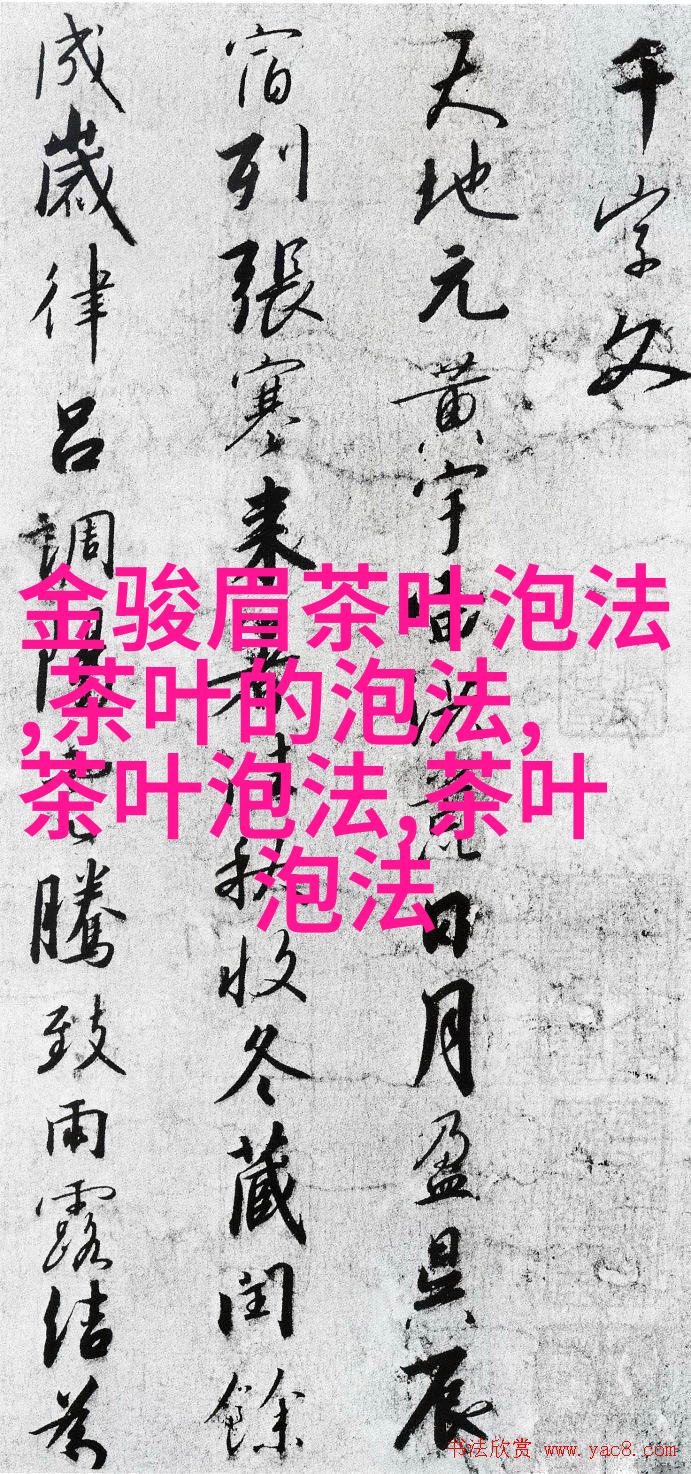 千字文
天地元黄宇宙洪荒日月盈昃辰
宿列張寒来暑往秋收冬蔵閏餘
成歲律吕調陽雲騰致雨露結為
金骏眉茶叶泡法
,茶叶的泡法,
茶叶泡法,茶叶
泡法
书法欣赏 www.yac8.com